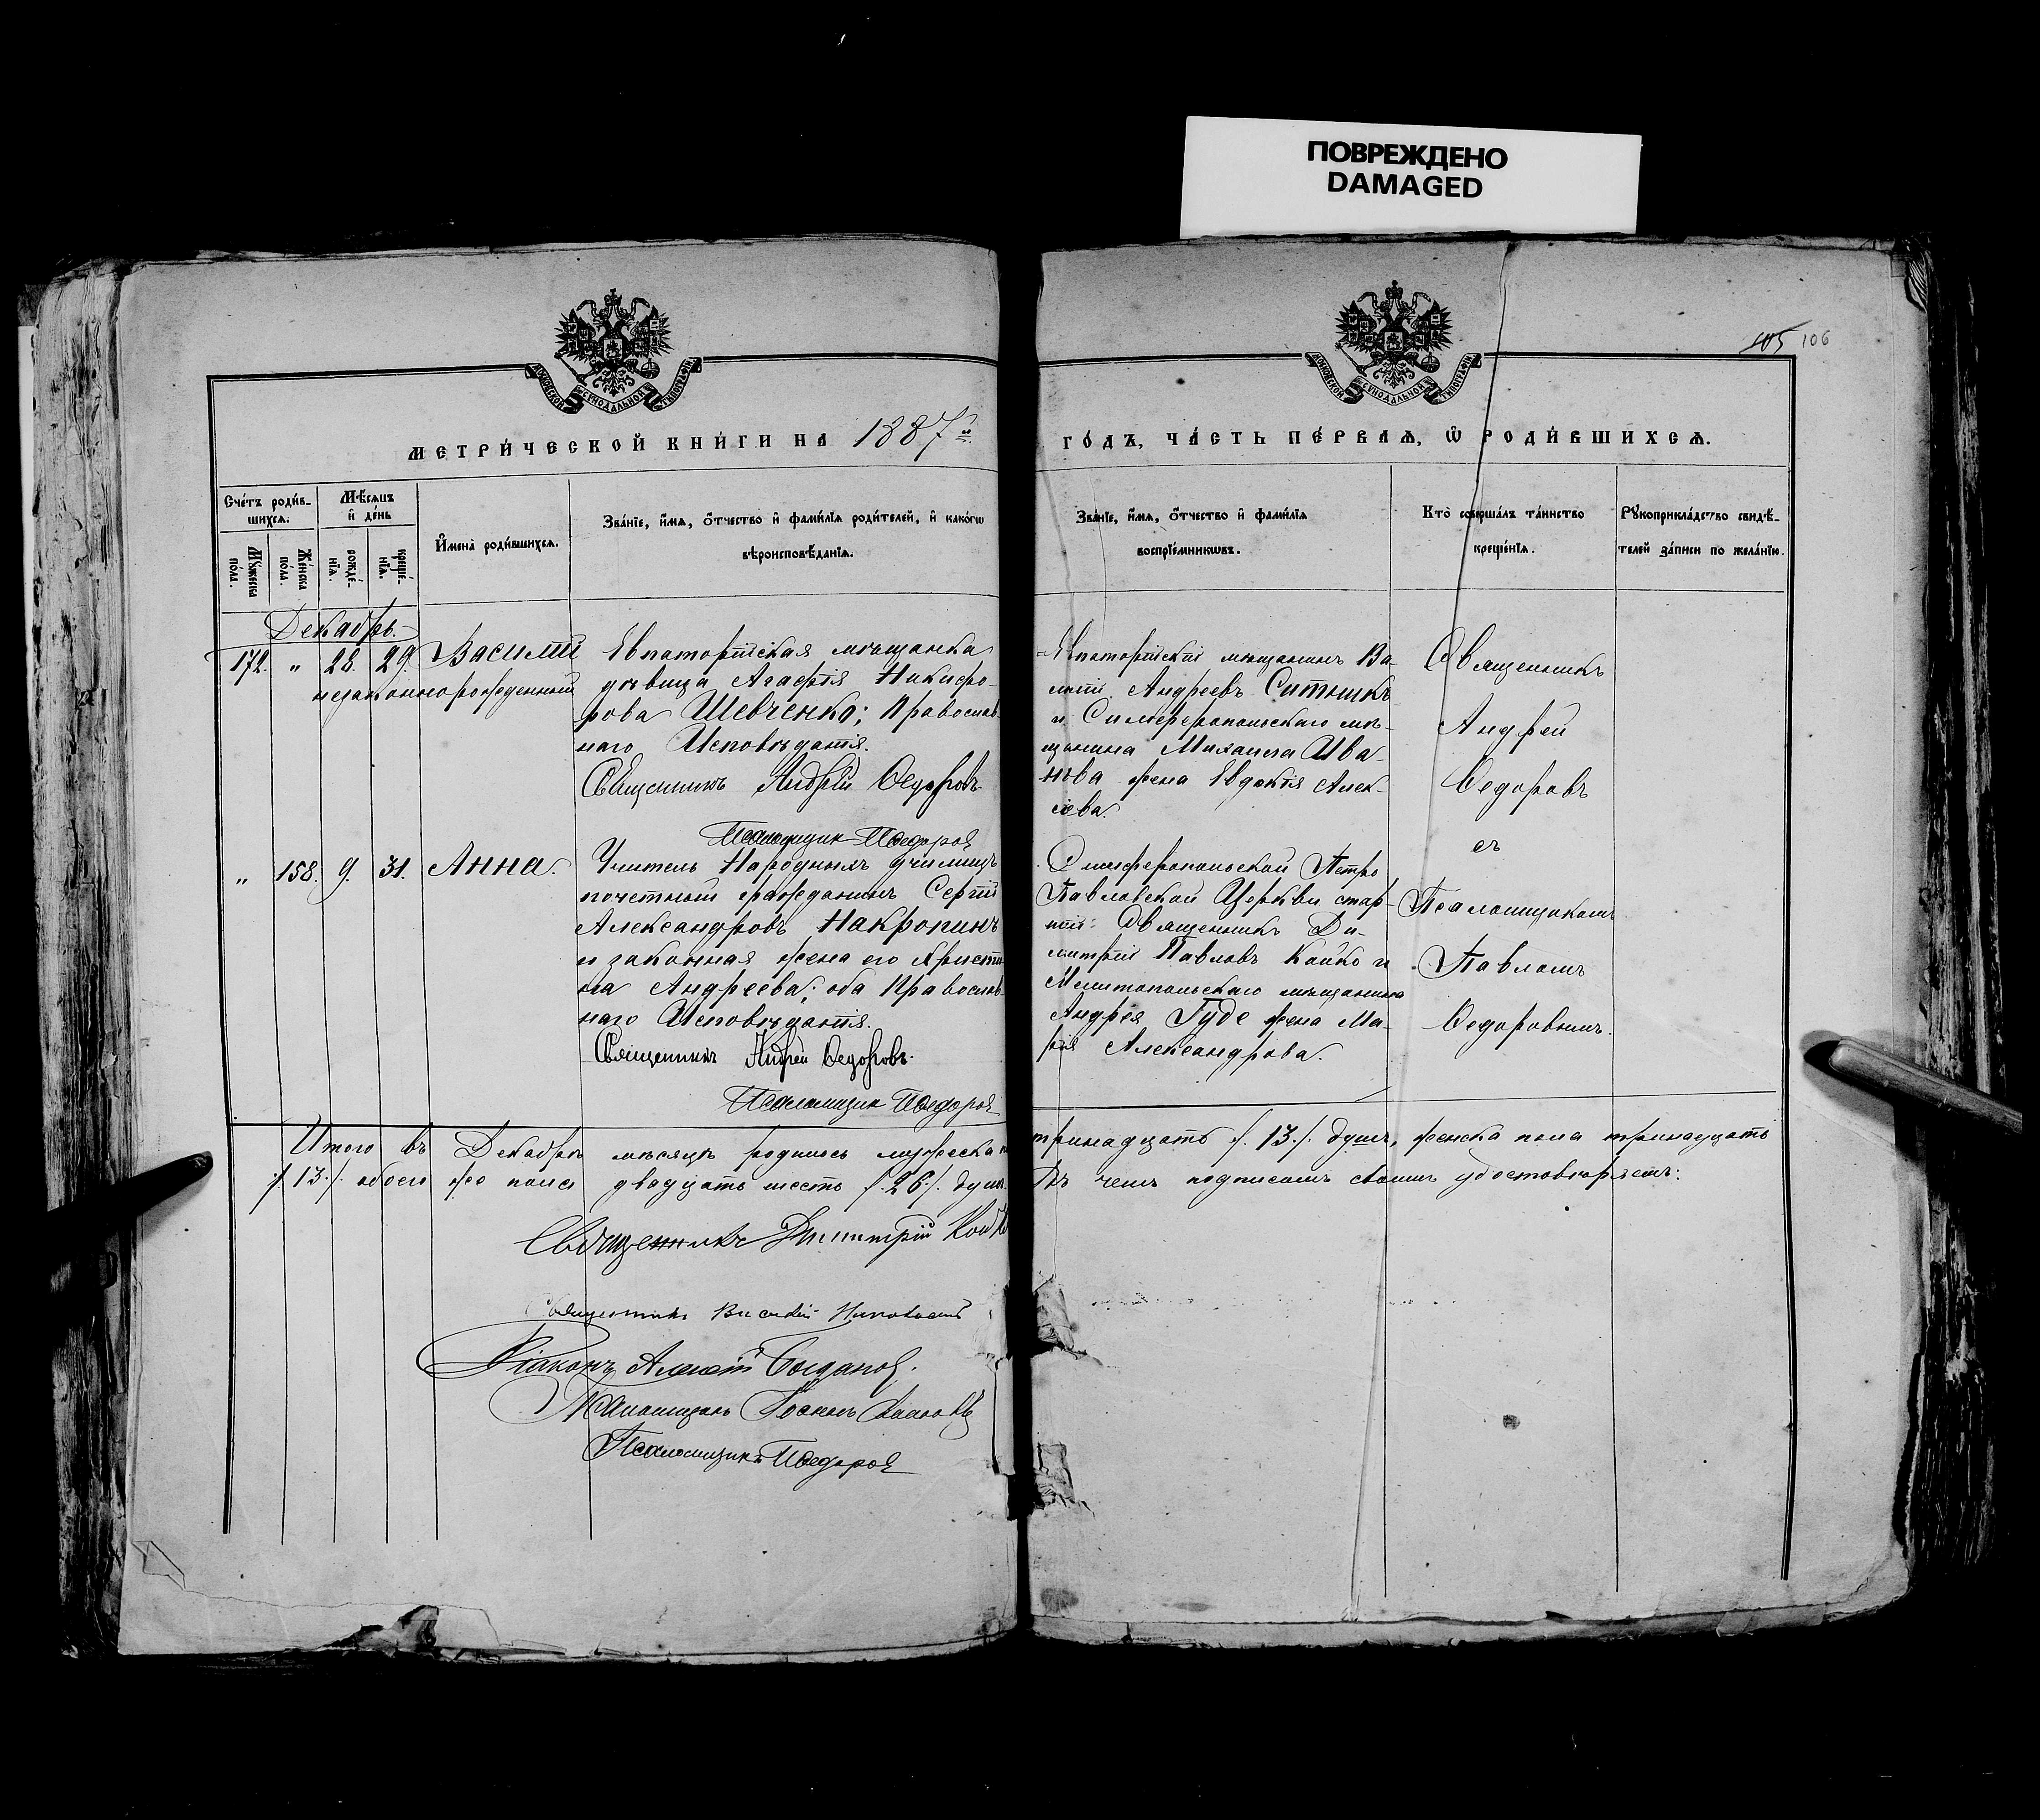 ПОВРЕЖДЕНО
DAMAGED
105 106
МОСКОВСКОЙ СѴНОДАЛЬНОЙ ТИПОГРАФІИ
МОСКОВСКОЙ СѴНОДАЛЬНОЙ ТИПОГРАФІИ
МЕТРИ́ЧЕСКОЙ КНИ́ГИ НА 1887й
ГО́ДЪ, ЧА́СТЬ ПЕ́РВАѦ, Ѡ҆ РОДИ́ВШИХСѦ.
Сче́тъ роди́в-
шихсѧ.
Мѣ́сѧцъ
и҆ де́нь
Мꙋ́жеска
по́ла.
Же́нска
по́ла.
рожде́-
нїѧ.
креще́-
нїѧ.
И҆мена̀ роди́вшихсѧ.
Зва́нїе, и҆́мѧ, ѻ҆́тчество и҆ фами́лїѧ роди́телей, и҆ како́гѡ
вѣроисповѣ́данїѧ.
Зва́нїе, и҆́мѧ, ѻ҆́тчество и҆ фами́лїѧ
воспрїе́мникѡвъ.
Кто̀ соверша́лъ та́инство
креще́нїѧ.
Рꙋкоприкла́дство свидѣ́-
телей за́писи по жела́нїю.
Декабрь.
172. " 28. 29. Василій
незаконнорожденный
Евпаторійская мѣщанка
дѣвица Агафія Никифо-
рова Шевченко; Православ-
наго Исповѣданія.
Священникъ Андрей Ѳедоровъ
Псаломщик П Ѳедоров
Евпаторійскій мѣщанинъ Ва-
силій Андреевъ Ситникъ
и Симферопольскаго мѣ-
щанина Михаила Ива-
нова жена Евдокія Алек-
сѣева.
Священникъ
Андрей
Ѳедоровъ
съ
Псаломщикомъ
Павломъ
Ѳедоровымъ.
" 158. 9. 31. Анна.
Учитель Народныхъ училищъ
почетный гражданинъ Сергій
Александровъ Накропинъ
и законная жена его Христи-
на Андреева; оба Православ-
наго Исповѣданія.
Священникъ Андрей Ѳедоровъ.
Псаломщик П Ѳедоров
Симферопольской Петро
Павловской Церкви стар-
шій Священникъ Ди-
митрій Павловъ Койко и
Мелитопольскаго мѣщанина
Андрея Гуде жена Ма-
рія Александрова.
Итого въ Декабрѣ мѣсяцѣ родилось мужеска тринадцать /. 13 ./. душъ, женска пола тринадцать
/. 13 ./. обоего же пола двадцать шесть /. 26 ./. душъ. Въ чемъ подписомъ своимъ удостовѣряемъ:
Священникъ Димитрій Койко
Священникъ
Діаконъ Алексій Богданов.
Псаломщикъ
Псаломщикъ П Ѳедоров